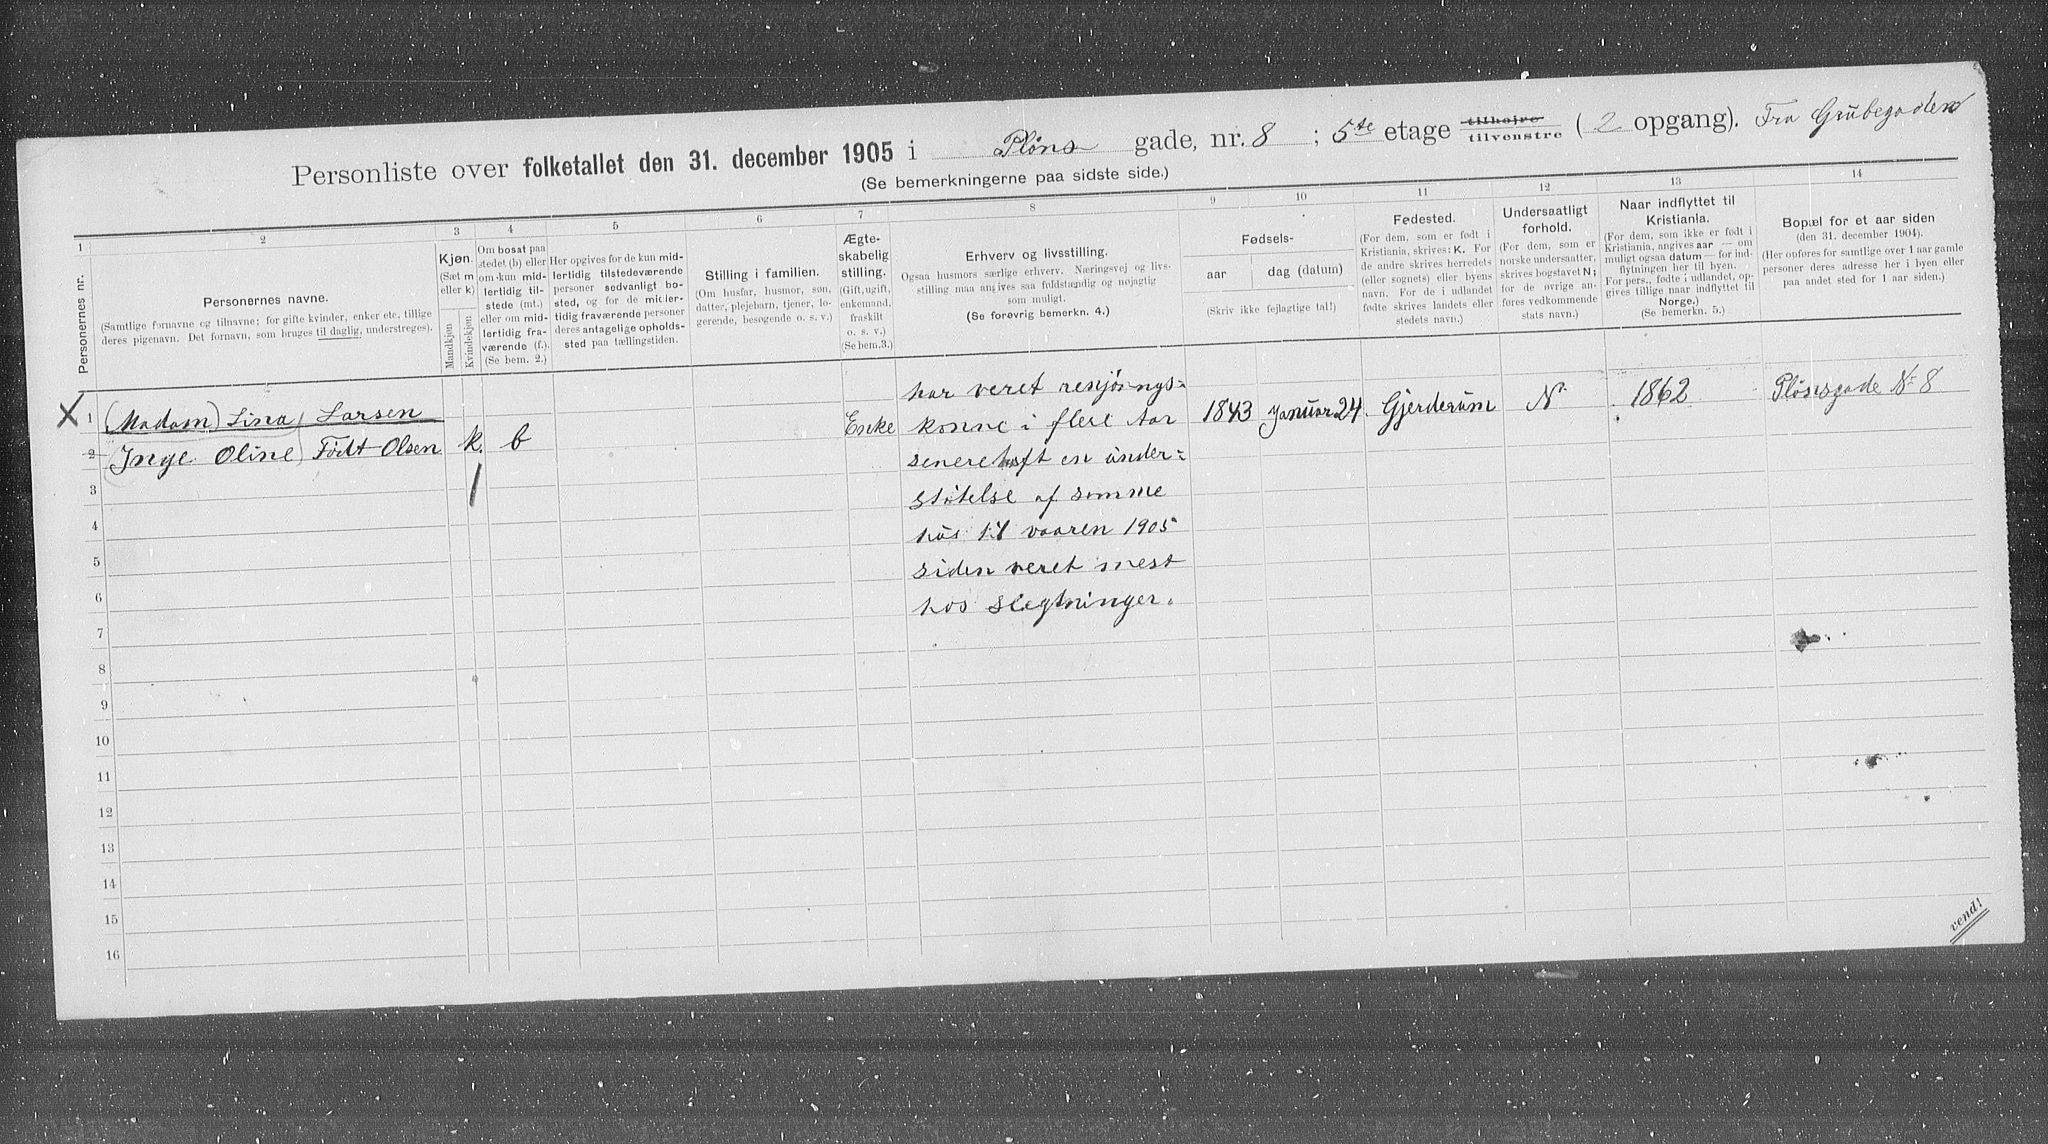 Personliste over folketallet den 31. december 1905 i Pløns gade, nr. 8 ; 5te etage tilhøjre tilvenstre ( 2 opgang). Fra Grübegaden
(Se bemerkningerne paa sidste side.)
1 2 3 4 5 6 7 8 9 10 11 12 13 14
Personernes nr.
Personernes navne.
(Samtlige fornavne og tilnavne; for gifte kvinder, enker etc. tillige
deres pigenavn. Det fornavn, som bruges til daglig, understreges).
Kjøn.
(Sæt m
eller k)
Mandkjøn
Kvindekjøn
Om bosat paa
stedet (b) eller
om kun mid-
lertidig til-
stede (mt.)
eller om mid-
lertidig fra-
værende (f.).
(Se bem. 2.)
Her opgives for de kun mid-
lertidig tilstedeværende
personer sedvanligt bo-
sted, og for de midler-
tidig fraværende personer
deres antagelige opholds-
sted paa tællingstiden.
Stilling i familien.
(Om husfar, husmor, søn,
datter, plejebarn, tjener, lo-
gerende, besøgende o. s. v.)
Ægte-
skabelig
stilling.
(Gift, ugift,
enkemand,
fraskilt
o. s. v.)
(Se bem.3.)
Erhverv og livsstilling.
Ogsaa husmors særlige erhverv. Næringsvej og livs-
stilling maa angives saa fuldstændig og nøjagtig
som muligt.
(Se forøvrig bemerkn. 4.)
Fødsels-
aar dag (datum)
(Skriv ikke fejlagtige tal!)
Fødested.
(For dem, som er født i
Kristiania, skrives: K. For
de andre skrives herredets
(eller sognets) eller byens
navn. For de i udlandet
fødte skrives landets eller
stedets navn.)
Undersaatligt
forhold.
(For dem, som er
norske undersaatter,
skrives bogstavet N;
for de øvrige an-
føres vedkommende
stats navn.)
Naar indflyttet til
Kristiania.
(For dem, som ikke er født i
Kristiania, angives aar — om
muligt ogsaa datum — for ind-
flytningen her til byen.
For pers., fødte i udlandet, op-
gives tillige naar indflyttet til
Norge.)
(Se bemerkn. 5.)
Bopæl for et aar siden
(den 31. december 1904).
(Her opføres for samtlige over 1 aar gamle
personer deres adresse her i byen eller
paa andet sted for 1 aar siden.)
X 1 (Madam) Lina Larsen
2 Inge Oline Født Olsen k. b
Enke
har veret renjørings-
konne i flere Aar
senere haft en ünder-
støtelse af samme
hüs til vaaren 1905
siden veret mest
hos slegtninger.
1843 Januar 24. Gjerderüm N. 1862 Plönsgade No 8
3
4
5
6
7
8
9
10
11
12
13
14
15
16
vend!